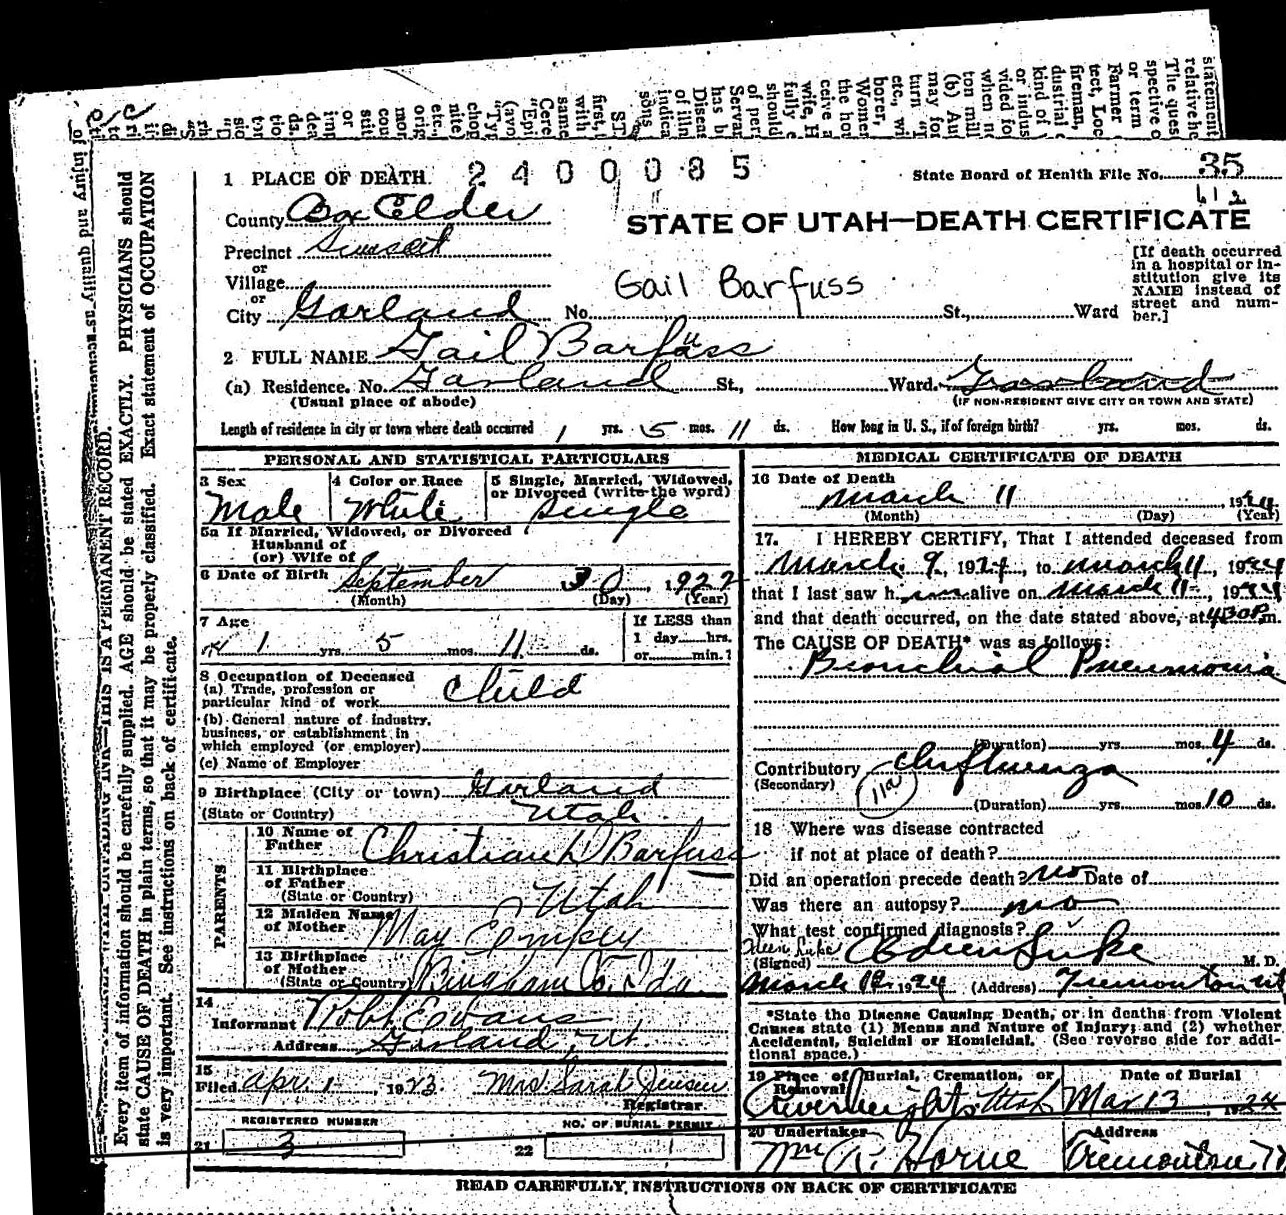 1 PLACE OF DEATH. 2400085
State Board of Health File No. 35
612
County Box Elder
STATE OF UTAH—DEATH CERTIFICATE
Precinct Sunset
or
Village
or
City Garland No. St., Ward
Gail Barfuss
[If death occurred
in a hospital or in-
stitution give its
NAME instead of
street and num-
ber.]
2 FULL NAME Gail Barfuss
(a) Residence. No. Garland St., Ward. Garland
(Usual place of abode) (IF NON-RESIDENT GIVE CITY OR TOWN AND STATE)
Length of residence in city or town where death occurred 1 yrs. 5 mos. 11 ds. How long in U. S., if of foreign birth? yrs. mos. ds.
PERSONAL AND STATISTICAL PARTICULARS
3 Sex
Male
4 Color or Race
White
5 Single, Married, Widowed,
or Divorced (write the word)
Single
5a If Married, Widowed, or Divorced
Husband of
(or) Wife of
6 Date of Birth September 30, 1922
(Month) (Day) (Year)
7 Age
1 yrs. 5 mos. 11 ds.
If LESS than
1 day hrs.
or min.?
8 Occupation of Deceased
(a) Trade, profession or
particular kind of work Child
(b) General nature of industry,
business, or establishment in
which employed (or employer)
(c) Name of Employer
9 Birthplace (City or town) Garland
(State or Country) Utah
PARENTS
10 Name of
Father Christian D Barfuss
11 Birthplace
of Father
(State or Country) Utah
12 Maiden Name
of Mother May
13 Birthplace
of Mother
(State or Country) Bingham Co. Ida
14
Informant Robt Evans
Address Garland, Ut.
15
Filed Apr. 1, 1923 Mrs Sarah Jensen
Registrar.
REGISTERED NUMBER
21 3
NO. OF BURIAL PERMIT
22
MEDICAL CERTIFICATE OF DEATH
16 Date of Death
March 11 1924
(Month) (Day) (Year)
17. I HEREBY CERTIFY, That I attended deceased from
March 9, 1924, to March 11, 1924
that I last saw h im alive on March 11, 1924
and that death occurred, on the date stated above, at 4:30 P. m.
The CAUSE OF DEATH* was as follows:
Bronchial Pneumonia
(Duration) yrs. mos. 4 ds.
Contributory Influenza
(Secondary)
11a
(Duration) yrs. mos. 10 ds.
18 Where was disease contracted
if not at place of death?
Did an operation precede death? no Date of
Was there an autopsy? no
What test confirmed diagnosis?
(Signed) Luke M. D.
March 1924 (Address) Tremonton Ut
*State the Disease Causing Death, or in deaths from Violent
Causes state (1) Means and Nature of Injury; and (2) whether
Accidental, Suicidal or Homicidal. (See reverse side for addi-
tional space.)
19 Place of Burial, Cremation, or
Removal
Riverheights Utah
Date of Burial
Mar 13, 1924
20 Undertaker
Wm R. Horne
Address
Tremonton
READ CAREFULLY, INSTRUCTIONS ON BACK OF CERTIFICATE
THIS IS A PERMANENT RECORD.
Every item of information should be carefully supplied. AGE should be stated EXACTLY. PHYSICIANS should
state CAUSE OF DEATH in plain terms, so that it may be properly classified. Exact statement of OCCUPATION
is very important. See instructions on back of certificate.